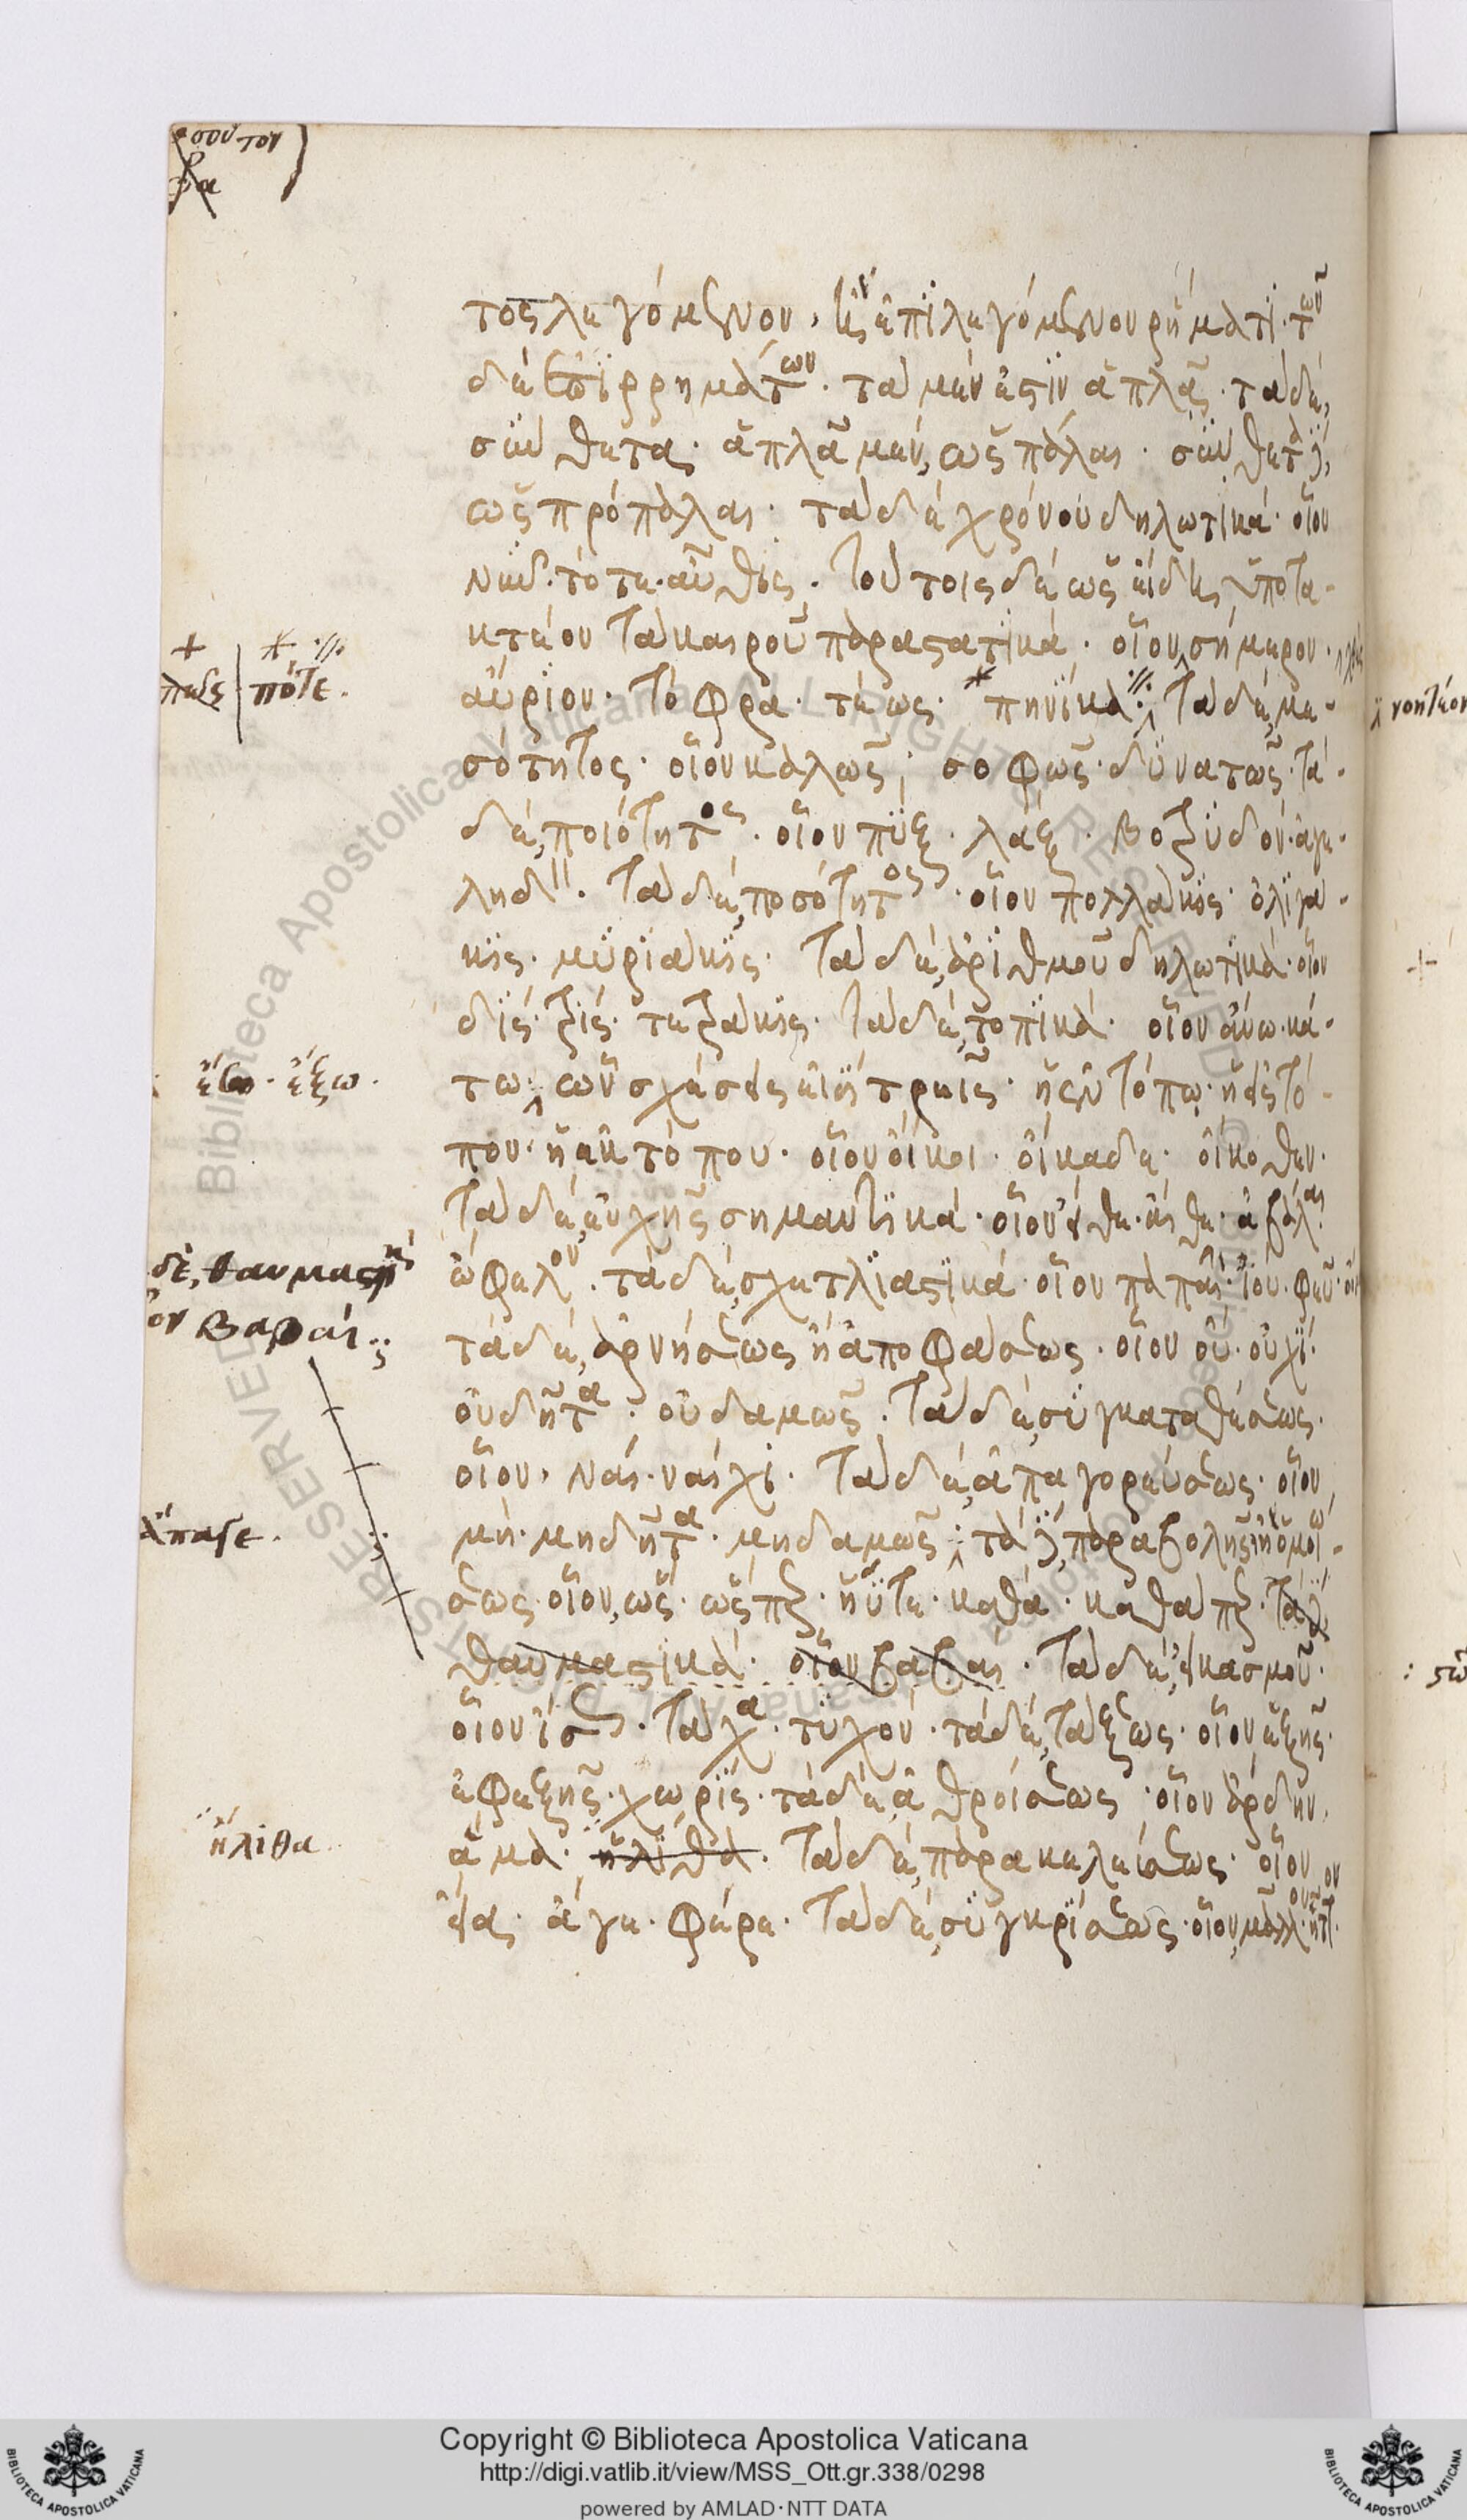 σουτον
τος λεγόμενον, ἢ ἐπιλεγόμενον ῥήματι· τῶν
δὲ ἐπιρρημάτων· τὰ μέν ἐστιν ἁπλᾶ· τὰ δὲ,
σύνθετα· ἁπλᾶ μὲν, ὡς πάλαι· σύνθετα δὲ,
ὡς πρόπαλαι· τὰ δὲ χρόνου δηλωτικά· οἷον
νῦν· τότε· αὖθις· τούτοις δὲ ὡς εἴδη ὑποτα-
κτέον τὰ καιροῦ παραστατικά· οἷον, σήμερον·
αὔριον· τόφρα· τέως· πηνίκα· τὰ δὲ, με-
πότε.
σότητος· οἷον καλῶς· σοφῶς· δυνατῶς· τὰ
δὲ, ποιότητος· οἷον πύξ· λάξ· βοτρυδόν· ἀγε-
ληδόν· τὰ δὲ, ποσότητος· οἷον πολλάκις· ὀλιγά-
κις· μυριάκις· τὰ δὲ, ἀριθμοῦ δηλωτικά· οἷον
δίς· τρίς· τετράκις· τὰ δὲ, τοπικά· οἷον ἄνω· κά-
τω· ὧν σχέσεις εἰσὶ τρεῖς· ἡ ἐν τόπῳ· ἡ εἰς τό-
ἔσω· ἔξω.
που· ἡ ἐκ τόπου· οἷον οἴκοι· οἴκαδε· οἴκοθεν·
τὰ δὲ, εὐχῆς σημαντικά· οἷον εἴθε· αἴθε· ἀβάλαι
ὤφελον· τὰ δὲ, σχετλιαστικά· οἷον παπαί· ἰού· φεῦ·
δὲ, θαυμαστικὰ
οἷον βαβαί
τὰ δὲ, ἀρνήσεως ἢ ἀποφάσεως· οἷον οὔ· οὐχί·
οὐδῆτα· οὐδαμῶς· τὰ δὲ, συγκαταθέσεως·
οἷον, ναί· ναίχι· τὰ δὲ, ἀπαγορεύσεως· οἷον
μή· μηδῆτα· μηδαμῶς· τὰ δὲ, παραβολῆς ἢ ὁμοιώ-
ἄπαγε.
σεως· οἷον, ὡς· ὥσπερ· ἠΰτε· καθά· καθάπερ· τὰ δὲ
θαυμαστικά· οἷον βαβαί· τὰ δὲ, εἰκασμοῦ·
οἷον ἴσως· τάχα· τυχόν· τὰ δὲ, τάξεως· οἷον ἑξῆς·
ἐφεξῆς· χωρίς· τὰ δὲ, ἀθροίσεως· οἷον ἄρδην·
ἅμα· ἤλιθα· τὰ δὲ, παρακελεύσεως· οἷον
ἤλιθα
εἶα· ἄγε· φέρε· τὰ δὲ, συγκρίσεως· οἷον, μᾶλλον· ἧττον·
νοητέον
Copyright © Biblioteca Apostolica Vaticana
http://digi.vatlib.it/view/MSS_Ott.gr.338/0298
powered by AMLAD·NTT DATA
BIBLIOTECA APOSTOLICA VATICANA
BIBLIOTECA APOSTOLICA VATICANA